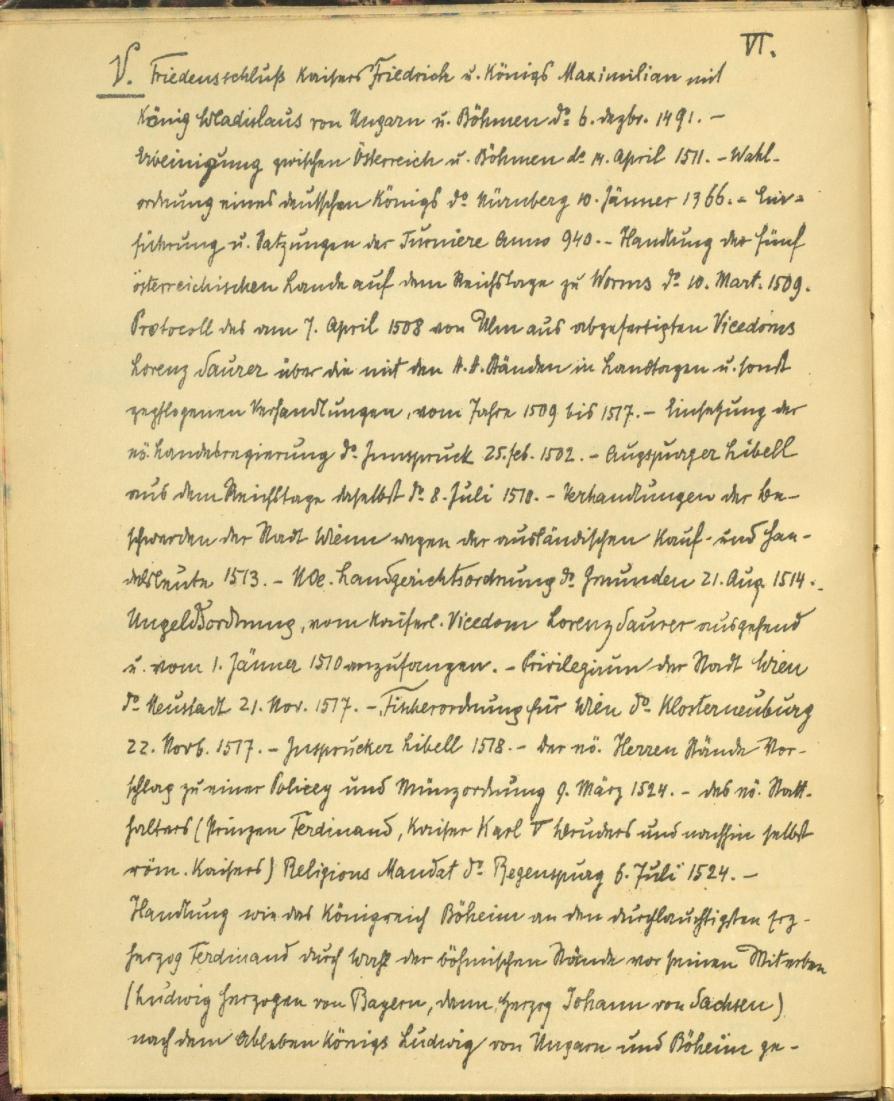 VI.
V. Friedensschluß Kaisers Friedrich u. Königs Maximilian mit
König Wladislaus von Ungarn u. Böhmen do 6. Dezbr. 1491. –
Vereinigung zwischen Österreich u. Böhmen do 14. April 1511. – Wahl-
ordnung eines deutschen Königs do Nürnberg 10. Jänner 1366. – Ein-
führung u. Satzungen der Turniere Anno 940. – Handlung der fünf
österreichischen Lande auf dem Reichstage zu Worms do 10. Mart. 1509.
Protocoll des am 7. April 1508 von Ulm aus abgefertigten Vicedoms
Lorenz Saurer über die mit den Ständen in Landtagen u. sonst
gepflogenen Verhandlungen, vom Jahre 1509 bis 1517. – Einsetzung der
nö. Landesregierung do Innspruck 25. feb. 1502. – Augspurger Libell
aus dem Reichstage daselbst do 8. Juli 1510. – Verhandlungen der Be-
schwerden der Stadt Wienn wegen der ausländischen Kauf- und Han-
delsleute 1513. – NOe. Landgerichtsordnung do Gmunden 21. Aug. 1514.
Ungeldsordnung, vom Kaiserl. Vicedom Lorenz Saurer ausgehend
u. vom 1. Jänner 1510 anzufangen. – Privilegium der Stadt Wien
do Neustadt 21. Nov. 1517. – Fischerordnung für Wien do Klosterneuburg
22. Novb. 1517. – Insprucker Libell 1518. – Der nö. Herren Stände Vor-
schlag zu einer Policey und Münzordnung 9. März 1524. – Des nö. Statt-
halters (Prinzen Ferdinand, Kaiser Karl V Bruders und nachhin selbst
röm. Kaisers) Religions Mandat do Regenspurg 6. Juli 1524. –
Handlung wie das Königreich Böheim an den durchlauchtigsten Erz-
herzog Ferdinand durch Wahl der böhmischen Stände vor seinen Miterben
(Ludwig Herzogen von Bayern, dann Herzog Johann von Sachsen)
nach dem Ableben Königs Ludwig von Ungarn und Böheim ge-